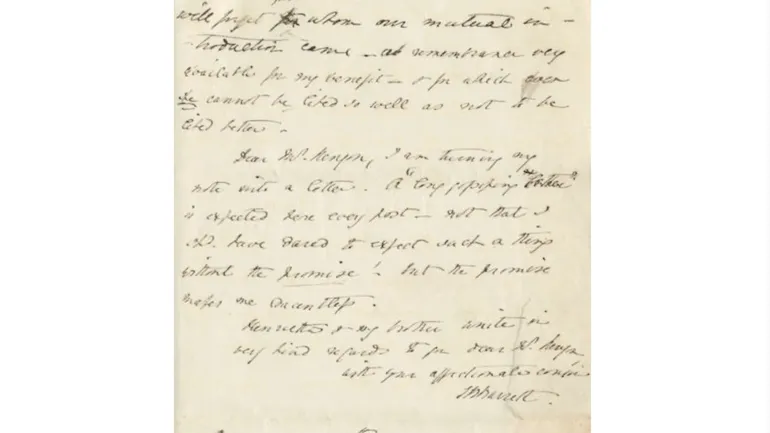 will forget from whom our mutual in-
troduction came – a remembrance very
available for my benefit – & for which even
he cannot be liked so well as not to be
liked better.
Dear Mr. Kenyon, I am turning my
note into a letter. A "long gossiping letter"
is expected here every post – not that I
shd. have dared to expect such a thing
without the promise! but the promise
makes me dauntless.
Henrietta & my brother unite in
very kind regards to you dear Mr. Kenyon
with your affectionate cousin
EBBarrett.